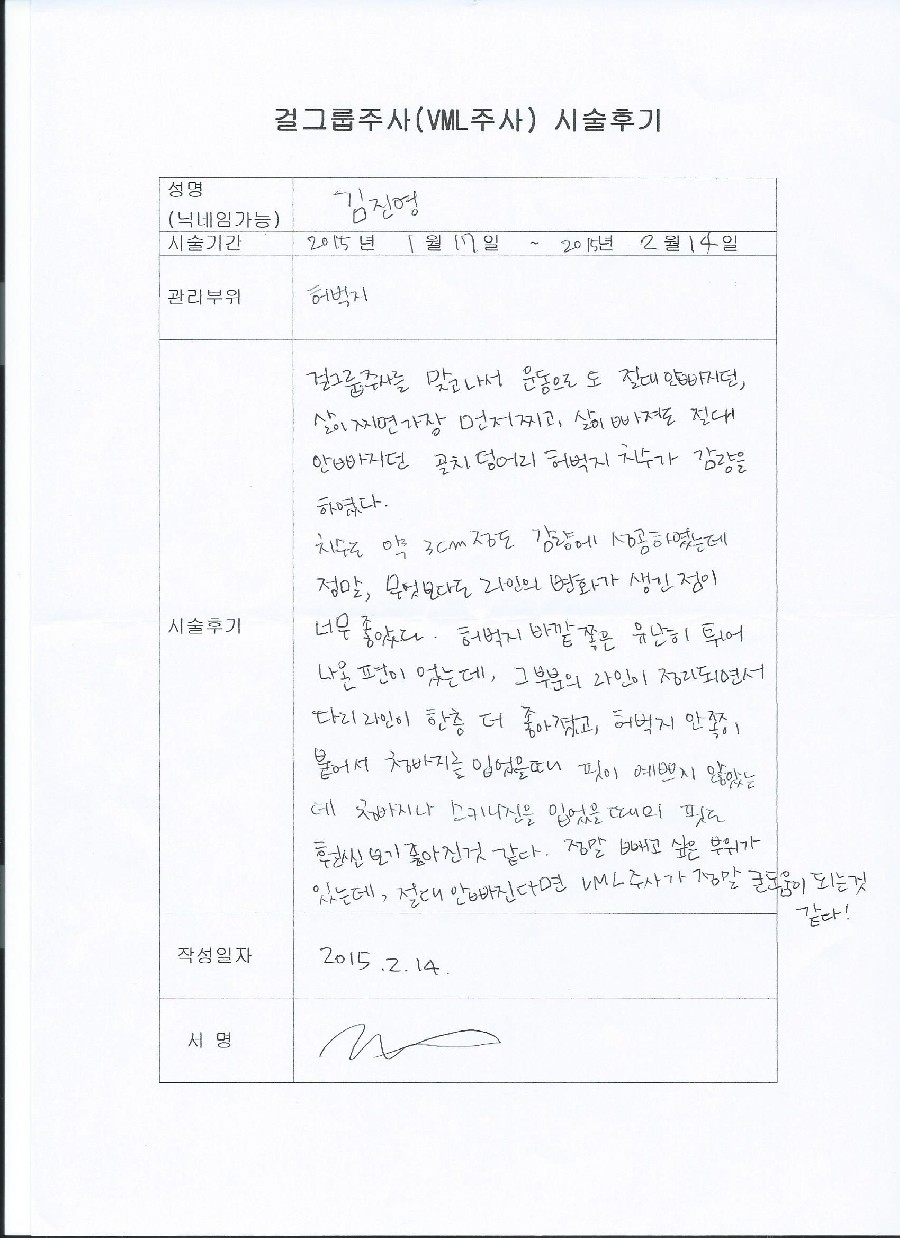 걸그룹주사(VML주사) 시술후기
성명
(닉네임가능)
김진영
시술기간
2015년 1월 17일 ~ 2015년 2월 14일
관리부위
허벅지
시술후기
걸그룹주사를 맞고나서 운동으로 도 절대안빠지던,
살이찌면가장 먼저찌고, 살이빠져도 절대
안빠지던 골치덩어리 허벅지 치수가 감량을
하였다.
치수는 약 3cm정도 감량에 성공하였는데
정말, 무엇보다도 라인의 변화가 생긴점이
너무 좋았다. 허벅지 바깥쪽은 유난히 튀어
나온 편이 었는데, 그부분의 라인이 정리되면서
다리라인이 한층 더 좋아졌고, 허벅지 안쪽이
붙어서 청바지를 입었을때 핏이 예쁘지 않았는
데 청바지나 스키니진을 입었을 때의 핏도
훨씬 보기좋아진것 같다. 정말 빼고 싶은 부위가
있는데, 절대안빠진다면 VML주사가 정말 큰도움이 되는것
같다!
작성일자
2015.2.14.
서 명